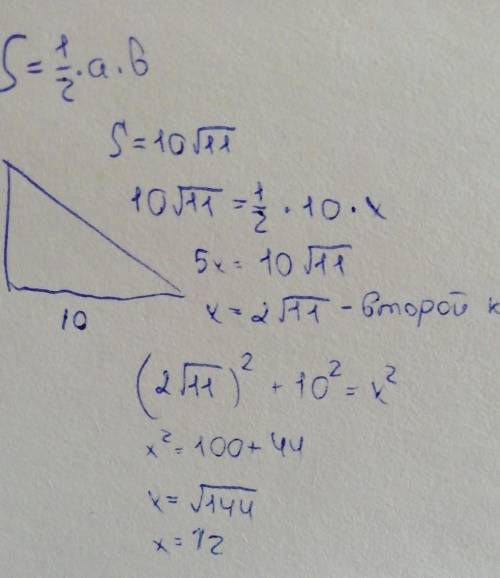 S = 1/2 · a · b
S = 10√11
10√11 = 1/2 · 10 · x
5x = 10√11
10
x = 2√11 - второй к
(2√11)² + 10² = x²
x² = 100 + 44
x = √144
x = 12